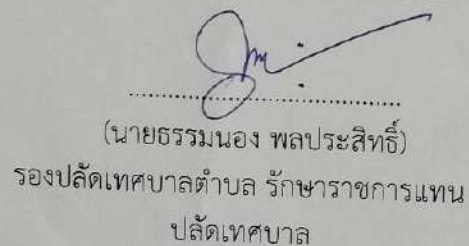 (นายธรรมนอง พลประสิทธิ์)
รองปลัดเทศบาลตำบล รักษาราชการแทน
ปลัดเทศบาล